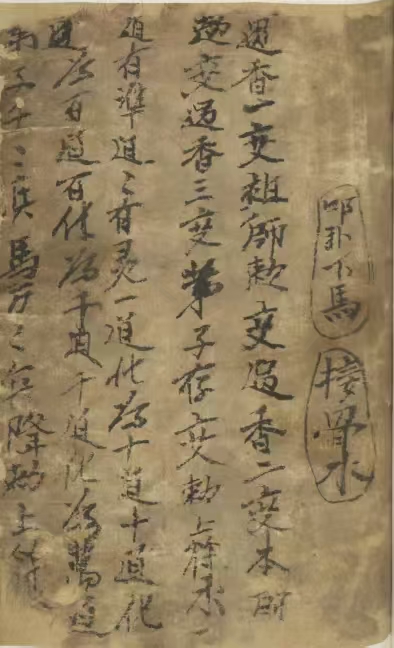 叩卦下馬 接骨水
過香一变祖師勅变過香二变本師
勅变過香三变弟子存变勅上符水一
道有準道〻有灵一道化為十道十道化
道為百道百化為千道千道化為萬道
弟子千〻兵馬万〻兵降勅上